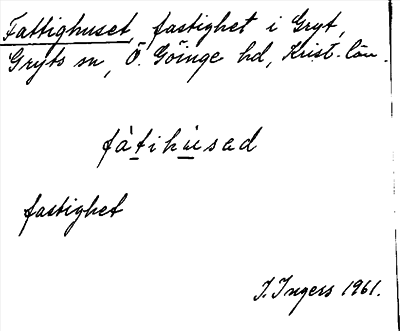 Fattighuset, fastighet i Gryt,
Gryts sn, Ö. Göinge hd, Krist. län.
fàtihùsad
fastighet
I. Ingers 1961.